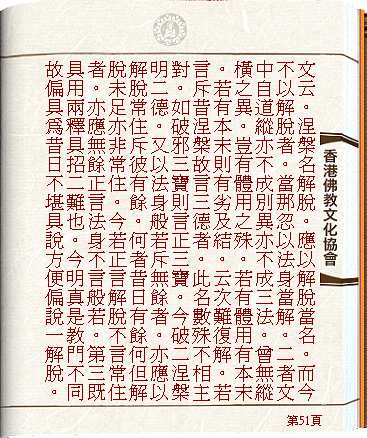 文云。涅槃名解脫。應以解脫當名。而今
不以解脫者。當那忽以法身當解。二者文
中自道縱亦不成別異亦不成三法。曾無縱
橫之異。豈有體用之殊。若有體用有本末
。若有本末則有劣及結。云次難復解。若
言斥昔涅槃故言三德者。此名數殊不相主
對。如破邪三寶則言正三寶。今破二涅槃
明二德。又以法身般若斥無餘者。亦應以
解脫常住斥彼有餘。何者昔日有餘何但解
脫未足亦非常住。今若正言解脫不言常住
者。亦應無餘正言法身不言般若。第三既
具用兩釋具招二難也。今明真是教門不同
故偏具為昔日不堪具說方便偏說一解脫。
香港佛教文化協會
第51頁